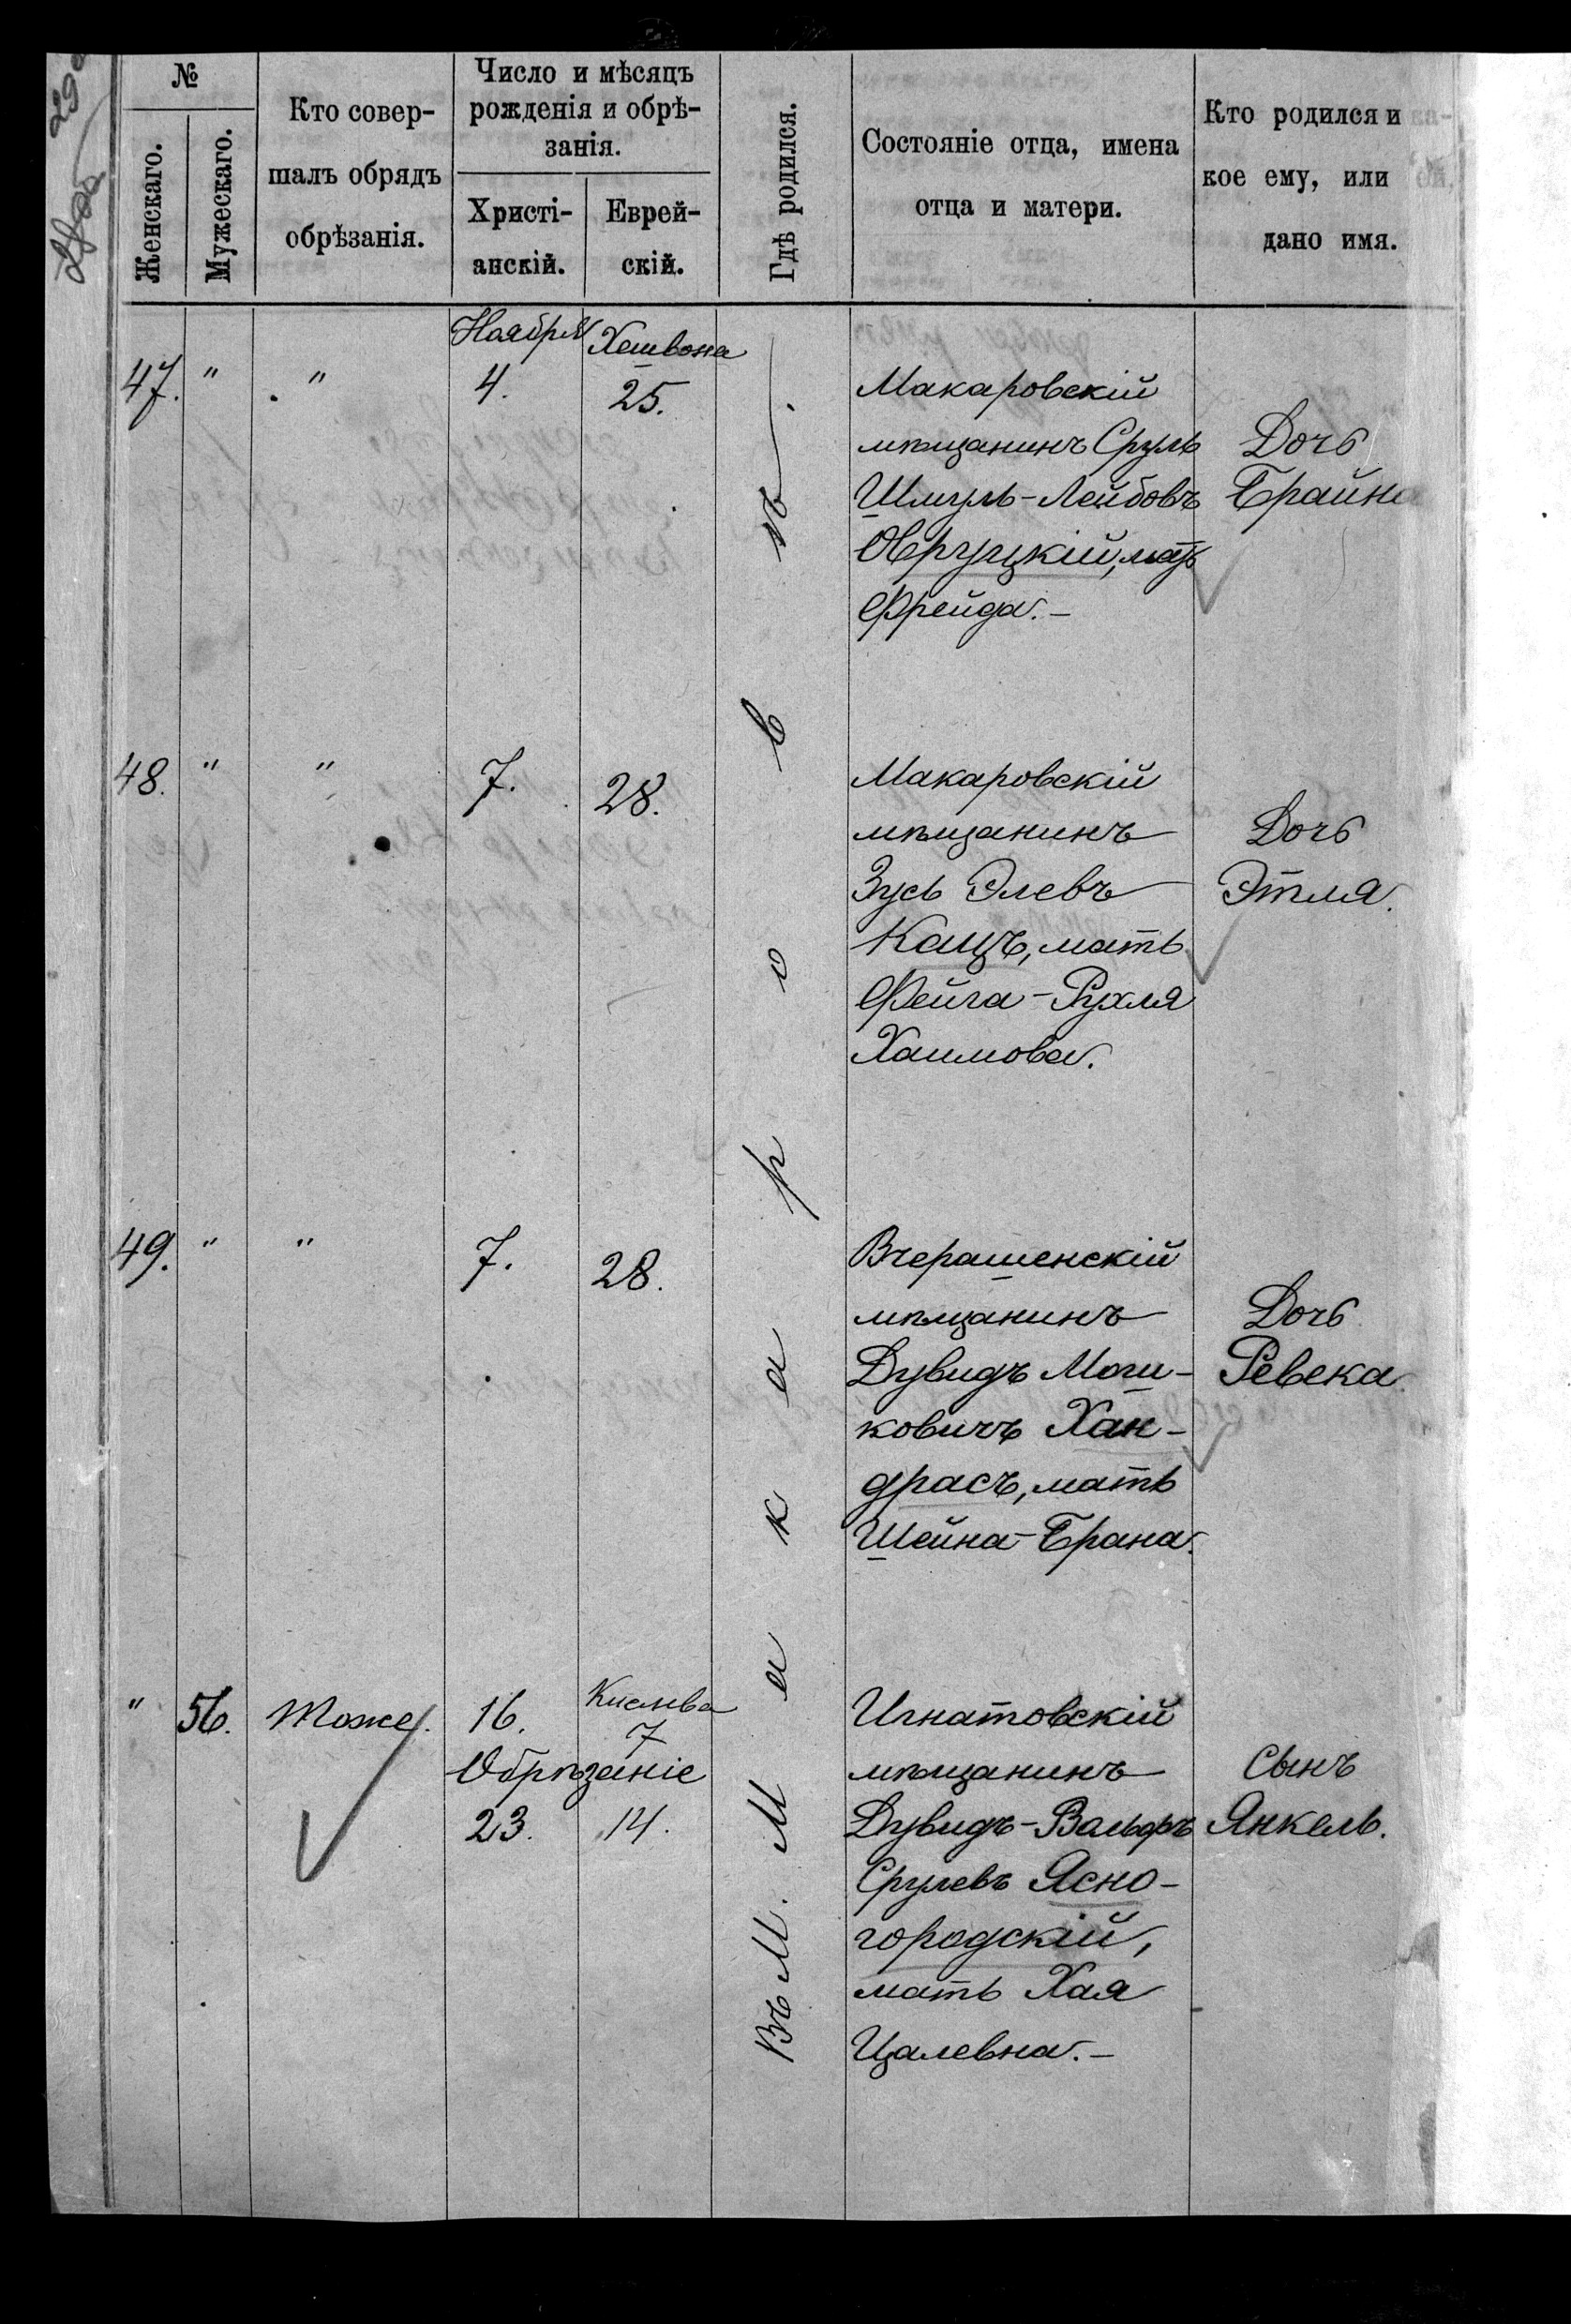 №
Женскаго.
Мужескаго.
Кто совер-
шалъ обрядъ
обрѣзанія.
Число и мѣсяцъ
рожденія и обрѣ-
занія.
Христі-
анскій.
Еврей-
скій.
Гдѣ родился.
Состояніе отца, имена
отца и матери.
Кто родился и ка-
кое ему, или ей,
дано имя.
Въ М. Макаровѣ.
47. " " Ноября 4. Хешвона 25.
Макаровскій
мѣщанинъ Сруль
Шмуль-Лейбовъ
Овруцкій, мать
Фрейда.-
Дочь
Брайна
48. " " 7. 28.
Макаровскій
мѣщанинъ
Зусь Элевъ
Кацъ, мать
Фейга-Рухля
Хаимова.
Дочь
Этля.
49. " " 7. 28.
Вчерашенскій
мѣщанинъ
Дувидъ Моши-
ковичъ Хан-
драсъ, мать
Шейна-Брана.
Дочь
Ревека
" 56. Тоже. 16. Кислева 7
Обрѣзаніе
23. 14.
Игнатовскій
мѣщанинъ
Дувидъ-Вольфъ
Срулевъ Ясно-
городскій,
мать Хая
Цалевна.-
Сынъ
Янкель.